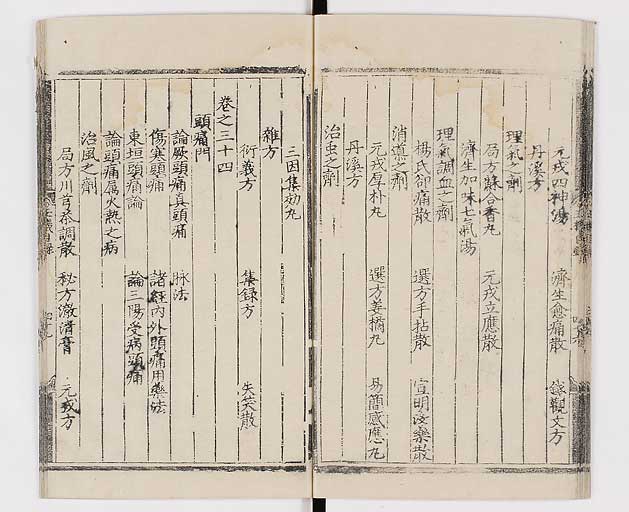 元戎四神湯 濟生愈痛散 文方
丹溪方
理氣之劑
局方蘇合香丸 元戎立應散
濟生加味七氣湯
理氣調血之劑
楊氏卻痛散 選方手拈散 宣明
消導之劑
元戎厚朴丸 選方姜橘丸 易簡感應丸
丹溪方
治虫之劑
三因集効丸
雜方
衍義方 集録方 失笑散
卷之三十四
頭痛門
論厥頭痛眞頭痛 脉法
傷寒頭痛 諸經內外頭痛用藥法
東垣頭痛論 論三陽受病頭痛
論頭痛屬火熱之病
治風之劑
局方川芎茶調散 秘方 元戎方